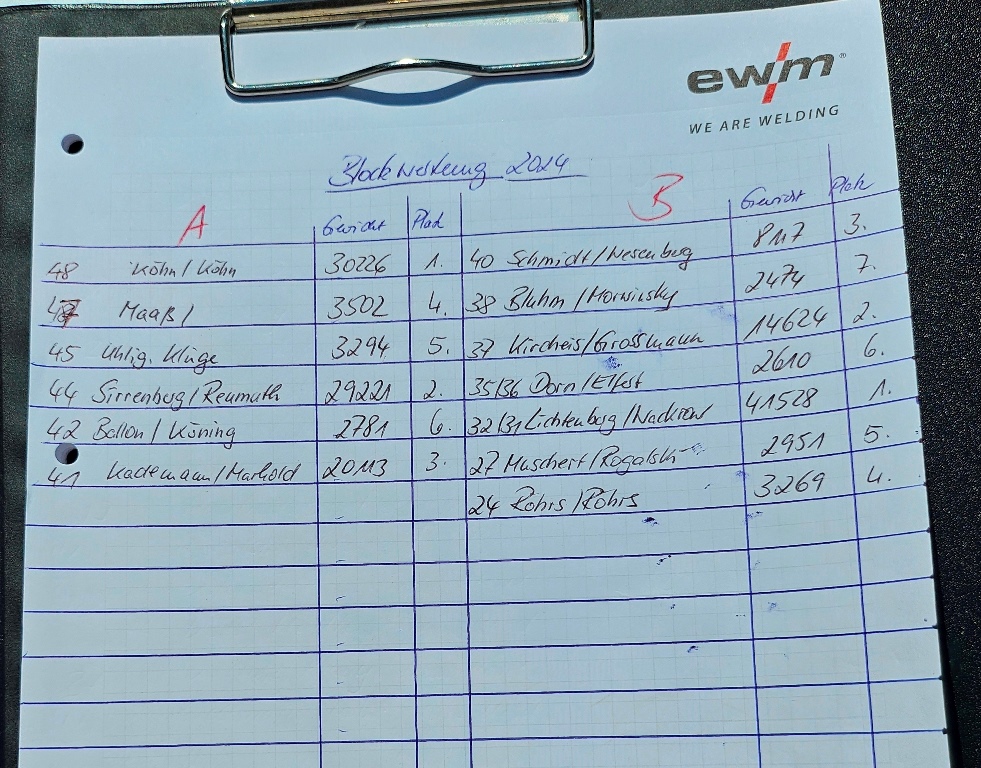 ewm®
WE ARE WELDING
Blockwertung 2024
A Gewicht Platz B Gewicht Platz
48 Köhn/Köhn 30226 1. 40 Schmidt/Nesenberg 8117 3.
Maaß/ 3502 4. 38 Bluhm/Morwinsky 2474 7.
45 Uhlig. Kluge 3294 5. 37 Kircheis/Grossmann 14624 2.
44 Sirrenberg/Reumuth 29221 2. 35/36 Dorn/Elfst 2610 6.
42 Ballon/Köning 2781 6. 32/31 Lichtenberg/Nackrow 41528 1.
41 Kademann/Markold 20113 3. 27 Muschert/Rogalski 2951 5.
24 Röhrs/Röhrs 3269 4.